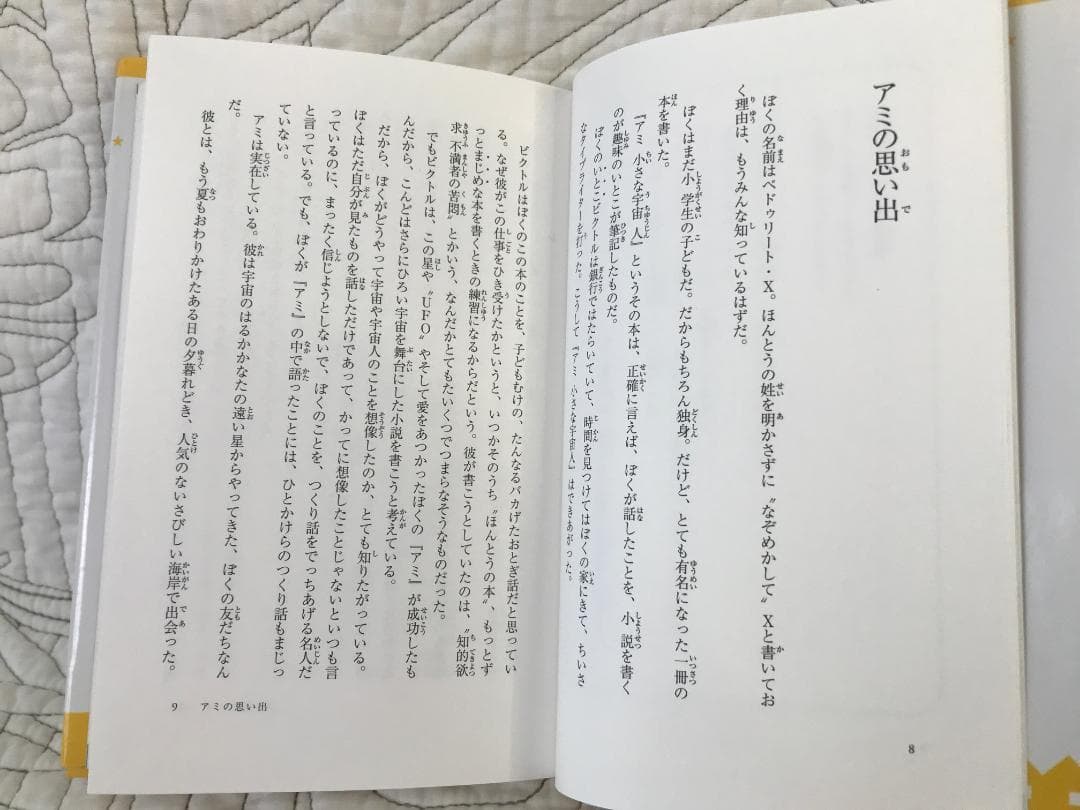 アミの思い出
ぼくの名前はペドゥリート・X。ほんとうの姓を明かさずに〝なぞめかして〟Xと書いてお
く理由は、もうみんな知っているはずだ。
ぼくはまだ小学生の子どもだ。だからもちろん独身。だけど、とても有名になった一冊の
本を書いた。
『アミ 小さな宇宙人』というその本は、正確に言えば、ぼくが話したことを、小説を書く
のが趣味のいとこが筆記したものだ。
ぼくのいとこビクトルは銀行ではたらいていて、時間を見つけてはぼくの家にきて、ちいさ
なタイプライターを打った。こうして『アミ 小さな宇宙人』はできあがった。
8
ビクトルはぼくのこの本のことを、子どもむけの、たんなるバカげたおとぎ話だと思ってい
る。なぜ彼がこの仕事をひき受けたかというと、いつかそのうち〝ほんとうの本〟、もっとず
っとまじめな本を書くときの練習になるからだという。彼が書こうとしていたのは、〝知的欲
求不満者の苦悶〟とかいう、なんだかとてもたいくつでつまらなそうなものだった。
でもビクトルは、この星や〝UFO〟やそして愛をあつかったぼくの『アミ』が成功したも
んだから、こんどはさらにひろい宇宙を舞台にした小説を書こうと考えている。
だから、ぼくがどうやって宇宙や宇宙人のことを想像したのか、とても知りたがっている。
ぼくはただ自分が見たものを話しただけであって、かってに想像したことじゃないといつも言
っているのに、まったく信じようとしないで、ぼくのことを、つくり話をでっちあげる名人だ
と言っている。でも、ぼくが『アミ』の中で語ったことには、ひとかけらのつくり話もまじっ
ていない。
アミは実在している。彼は宇宙のはるかかなたの遠い星からやってきた、ぼくの友だちなん
だ。
彼とは、もう夏もおわりかけたある日の夕暮れどき、人気のないさびしい海岸で出会った。
9 アミの思い出